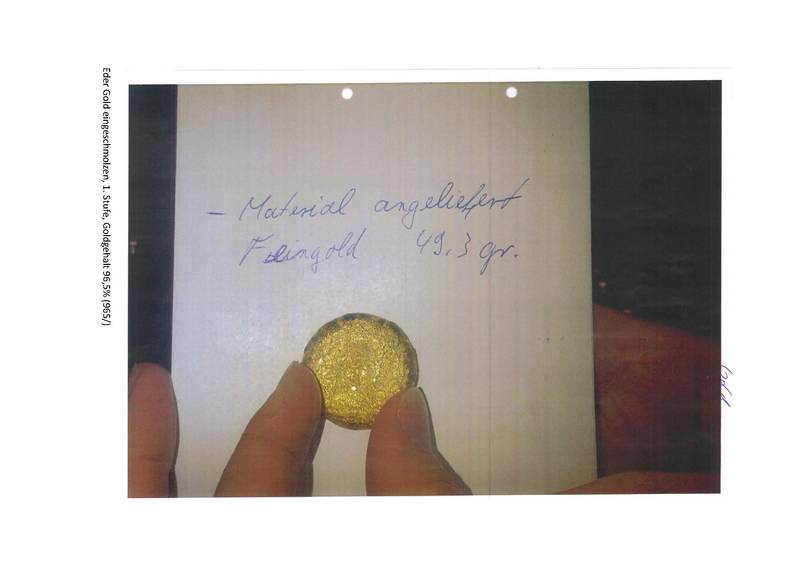 Eder Gold eingeschmolzen, 1. Stufe, Goldgehalt 96,5% (965/)
- Material angeliefert
Feingold 49.3 gr.